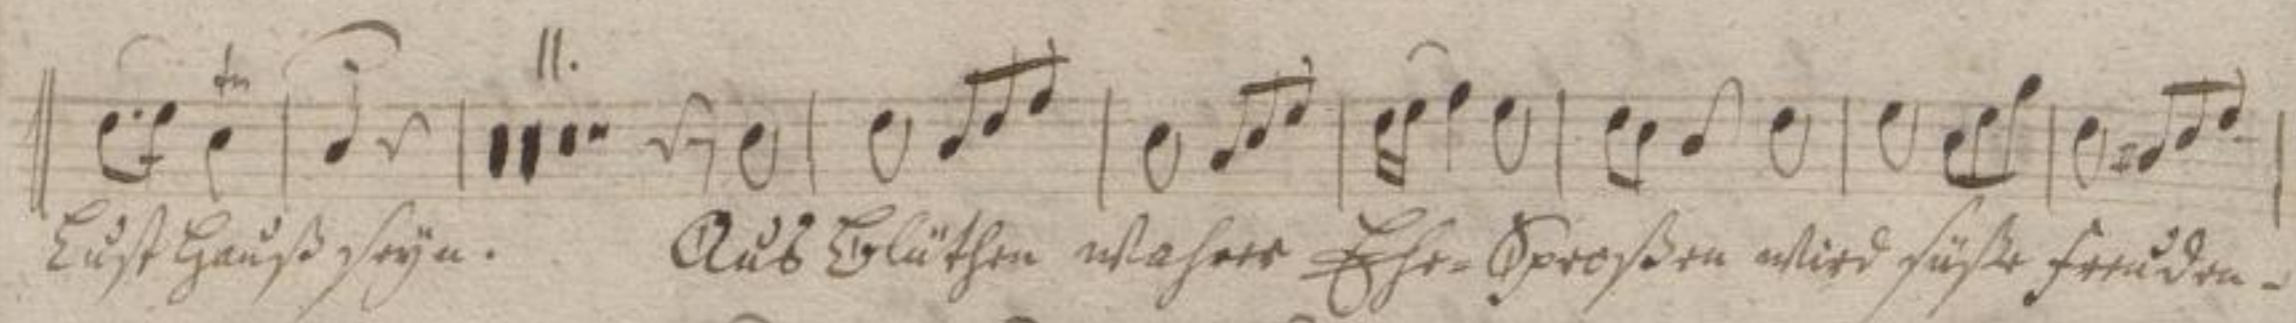 tr
11.
Lust Hauß seÿn. Aus Blüthen wahrer Ehe-Sproßen wird süße Freuden-